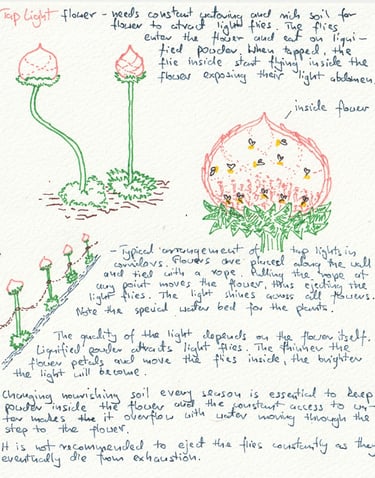 Tap Light flower - needs constant watering and rich soil for
flower to attract light flies. The flies
enter the flower and eat on liqui-
fied powder. When tapped, the
flie inside start flying inside the
flower exposing their light abdomen.
inside flower
- Typical arrangement of tap lights in
corridors. Flowers are placed along the wall
and tied with a rope. Pulling the rope at
any point moves the flower, thus ejecting the
light flies. The light shines across all flowers.
Note the special water bed for the plants.
The quality of the light depends on the flower itself.
Liquified powder attracts light flies. The thinner the
flower petals and move the flies inside, the brighter
the light will become.
Changing nourishing soil every season is essential to keep
powder inside the flower and the constant access to wa-
ter makes the it overflow with water moving through the
step to the flower.
It is not recommended to eject the flies constantly as they
eventually die from exhaustion.